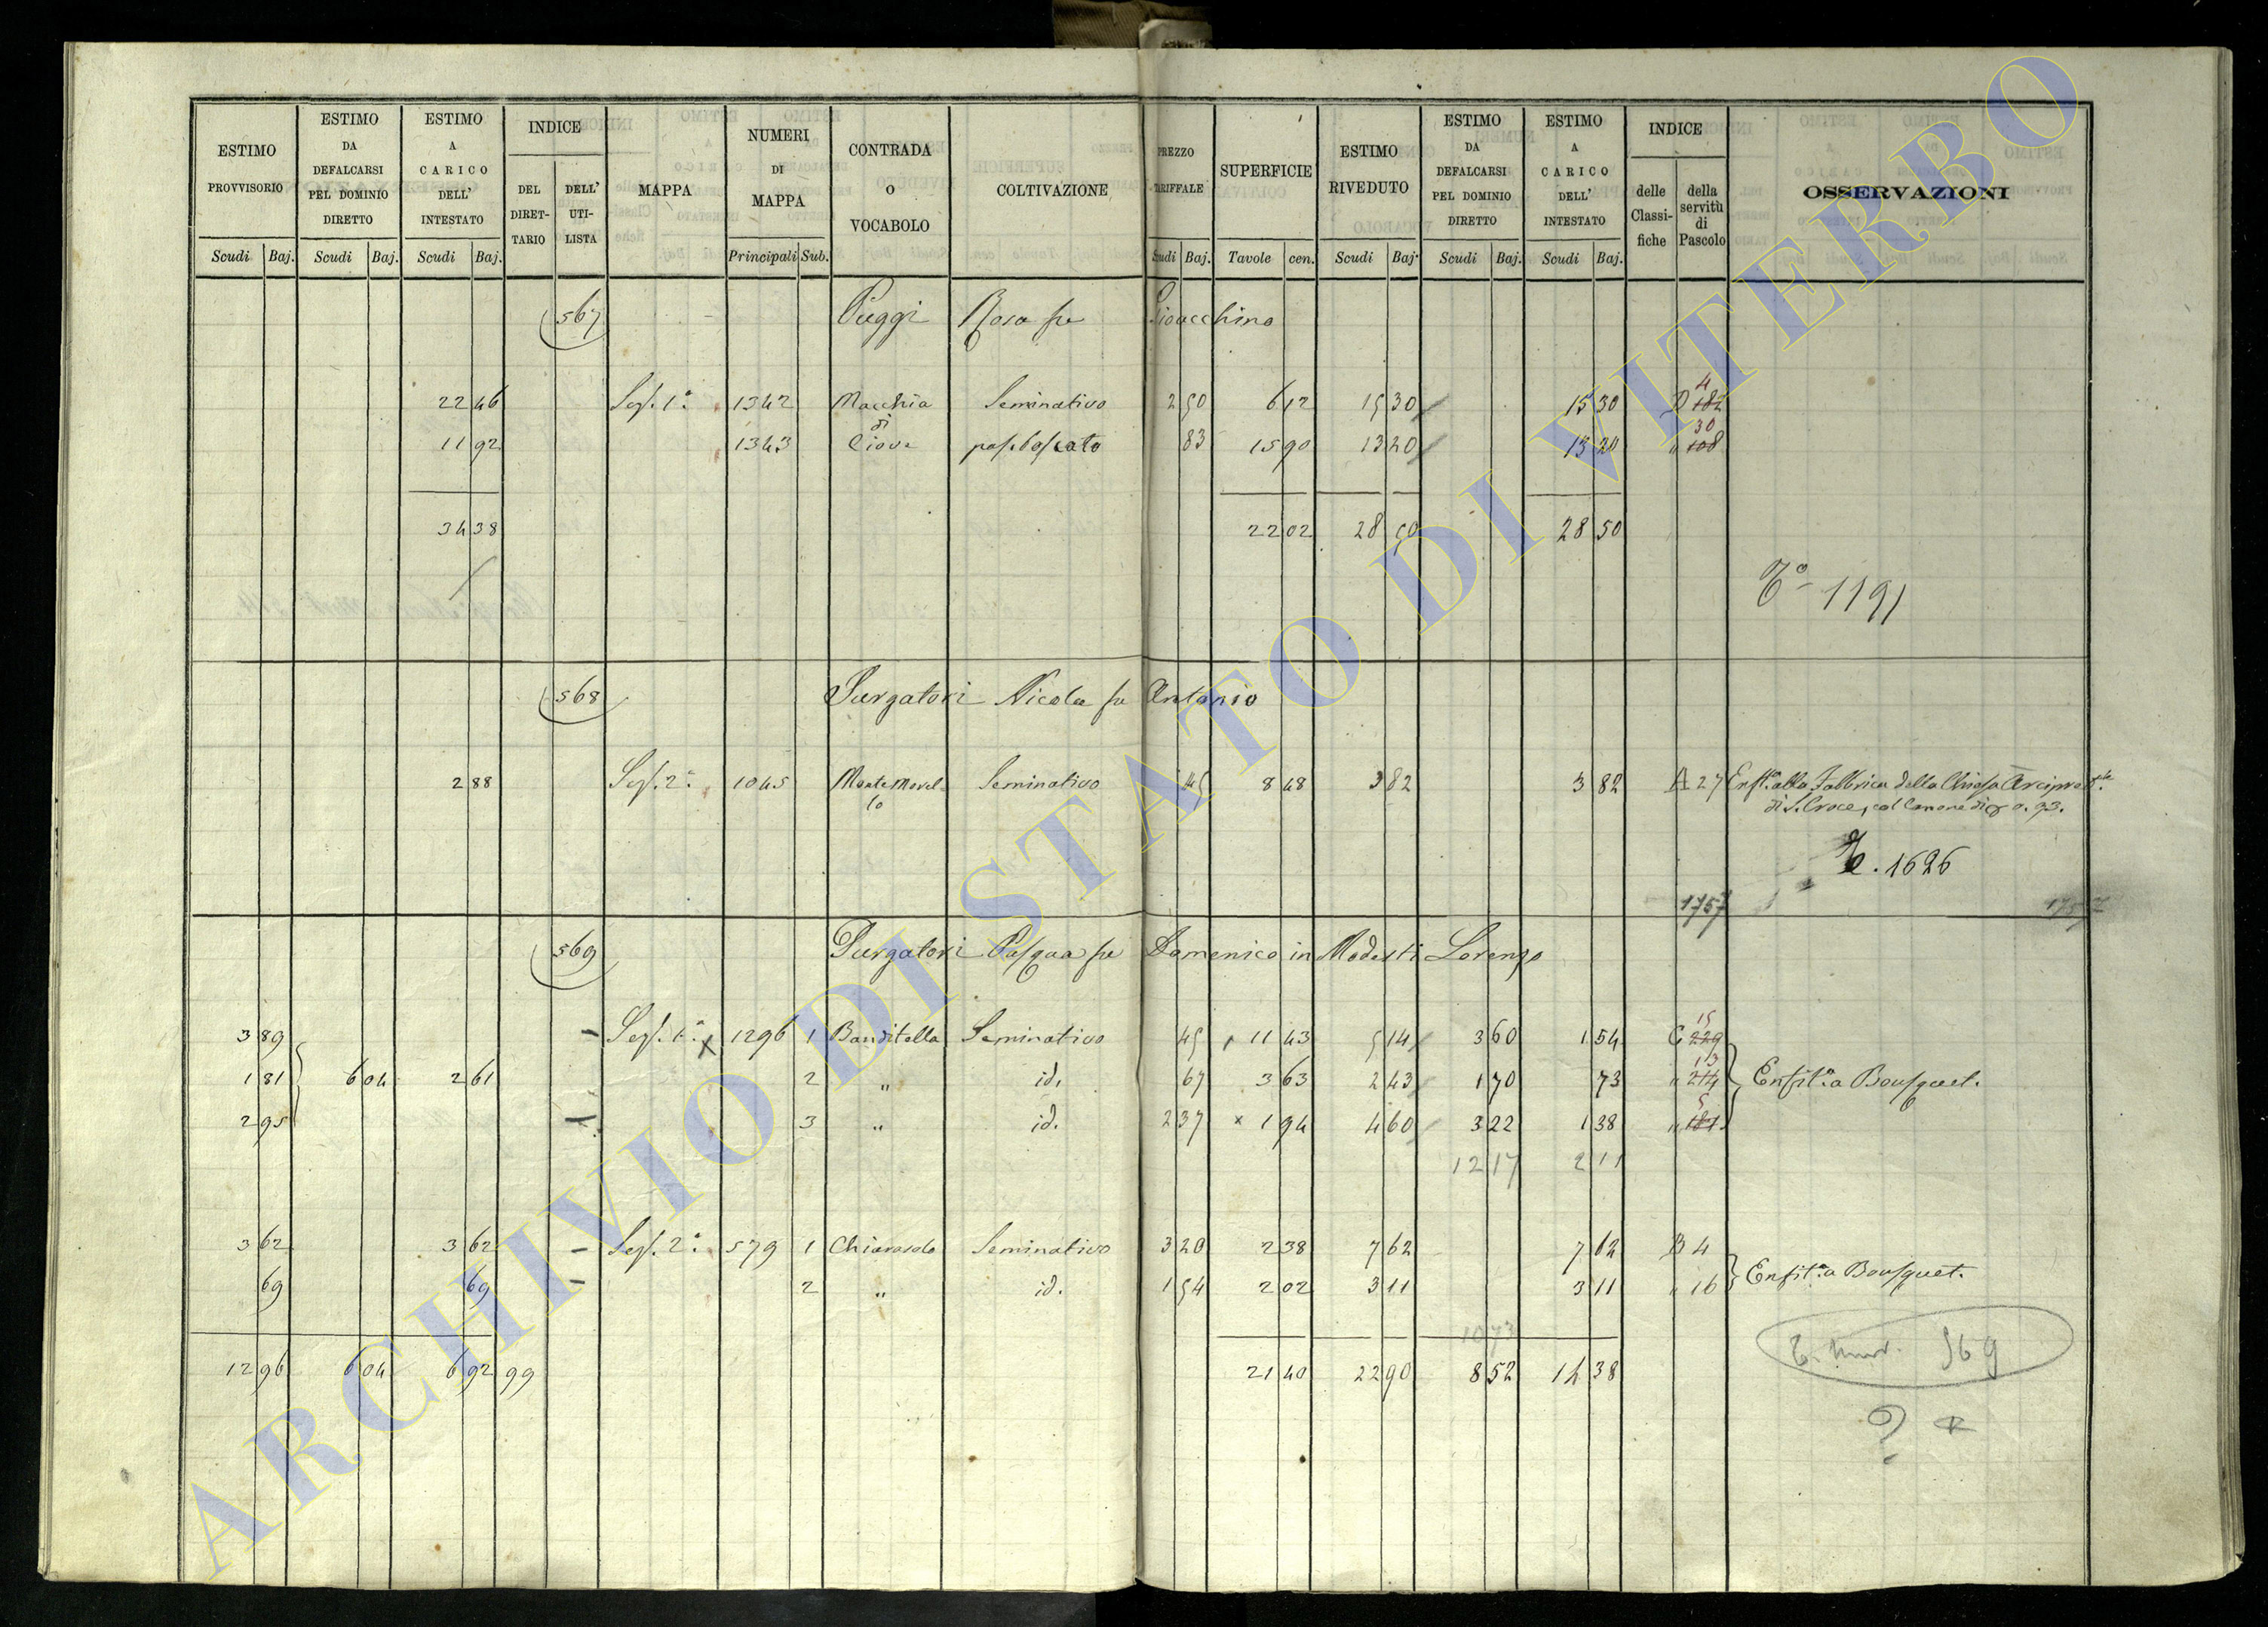 ESTIMO PROVVISORIO | ESTIMO DA DEFALCARSI PEL DOMINIO DIRETTO | ESTIMO A CARICO DELL' INTESTATO | INDICE DEL DIRET-TARIO | DELL' UTI-LISTA | MAPPA | NUMERI DI MAPPA | CONTRADA O VOCABOLO | COLTIVAZIONE | PREZZO TARIFFALE | SUPERFICIE | ESTIMO RIVEDUTO | ESTIMO DA DEFALCARSI PEL DOMINIO DIRETTO | ESTIMO A CARICO DELL' INTESTATO | INDICE delle Classi-fiche | della servitù di Pascolo | OSSERVAZIONI
Scudi Baj. Scudi Baj. Scudi Baj. Principali Sub. Scudi Baj. Tavole cen. Scudi Baj. Scudi Baj. Scudi Baj.
567 Puggi Rosa fu Gioacchino
22 46 Sez. 1ª 1342 Macchia Seminativo 2 50 6 12 15 30 15 30 D 182 4
di
11 92 1343 Giove pas. boscato 83 15 90 13 20 13 20 " 108 30
34 38 22 02 28 50 28 50
Tº 1191
568 Purgatori Nicola fu Antonio
2 88 Sez. 2ª 1045 Monte Morel-lo Seminativo 45 8 48 3 82 3 82 A 27 Enft. alla Fabbrica della Chiesa Arcipret.le
di S. Croce, col Canone di 0.93.
T. 1626
1757 1757
569 Purgatori Pasqua fu Domenico in Modesti Lorenzo
3 89 Sez. 1ª 1296 1 Banditella Seminativo 45 11 43 5 14 3 60 1 54 C 229 15
1 81 6 04 2 61 2 " id. 67 3 63 2 43 1 70 73 " 214 13 Enfit.a a Bousquet.
2 95 3 " id. 2 37 1 94 4 60 3 22 1 38 " 181 5
12 17 2 11
3 62 3 62 Sez. 2ª 579 1 Chiarasole Seminativo 3 20 2 38 7 62 7 62 B 4
69 69 2 " id. 1 54 2 02 3 11 3 11 " 16 Enfit.a a Bousquet.
1073
12 96 6 04 6 92 99 21 40 22 90 8 52 14 38
569
?
ARCHIVIO DI STATO DI VITERBO